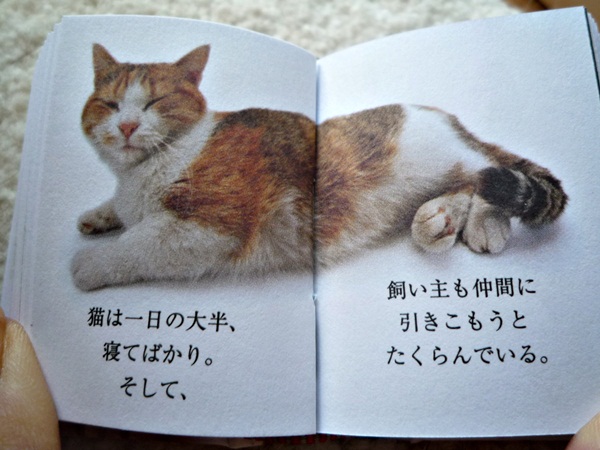 猫は一日の大半、
寝てばかり。
そして、
飼い主も仲間に
引きこもうと
たくらんでいる。